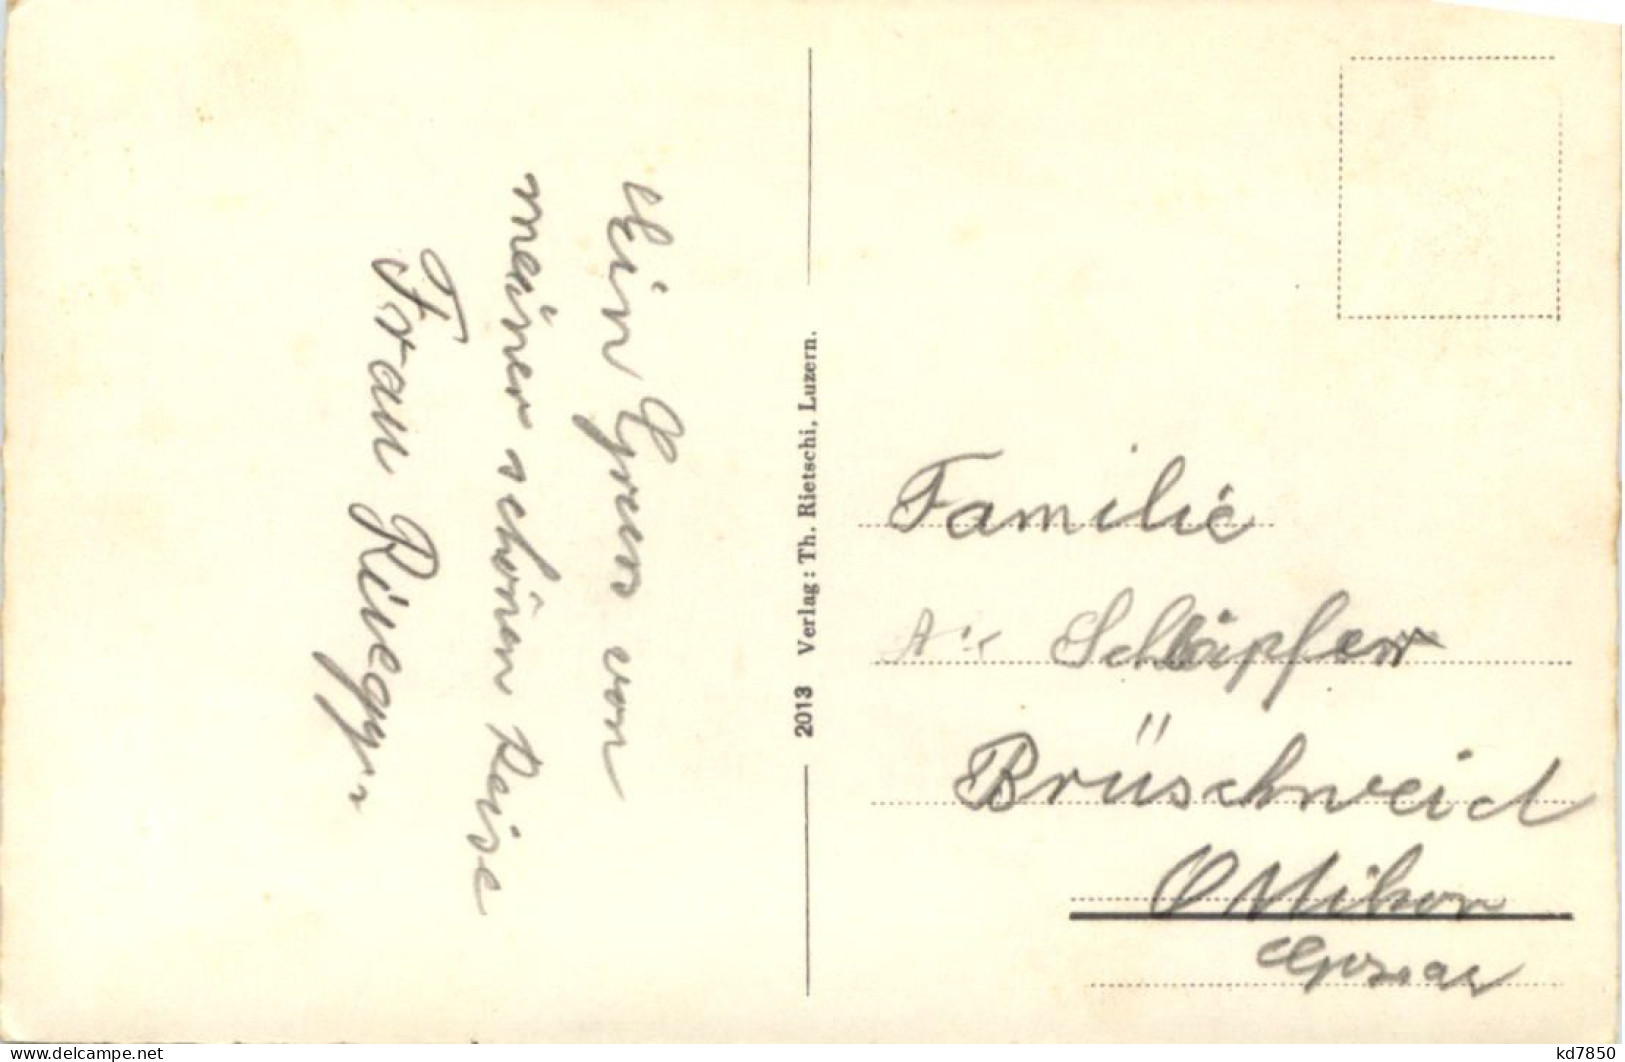 Ein Gruss von
meiner schönen Reise
Frau Rüegg.
2013 Verlag: Th. Rietschi, Luzern.
Familie
Schläpfer
Brüschweid
Ottikon
Gossau
www.delcampe.net
kd7850